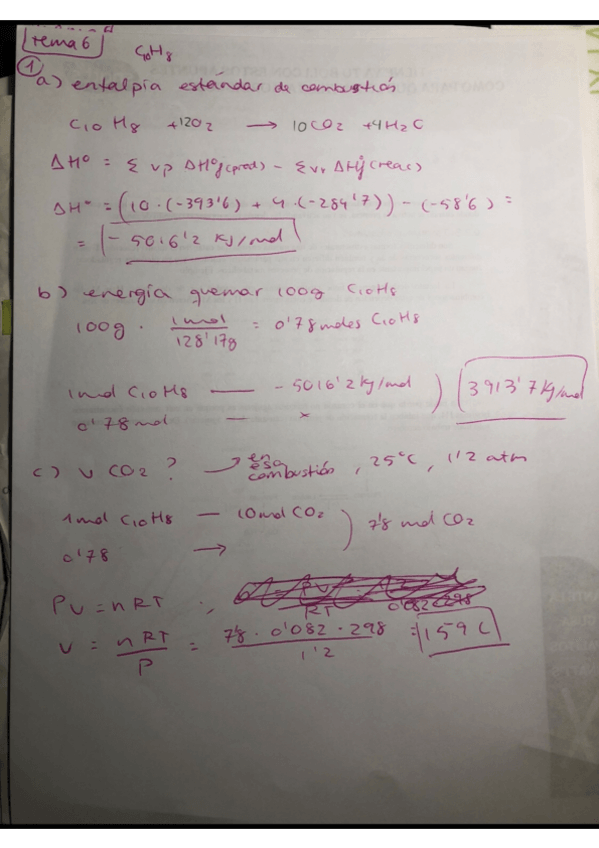 tema 6
C10H8
①
a) entalpía estándar de combustión
C10 H8 + 12O2 → 10CO2 + 4H2O
ΔH° = Σ νp ΔH°f(prod) - Σ νr ΔH°f(reac)
ΔH° = (10 · (-393'6) + 4 · (-284'7)) - (-58'6) =
= - 5016'2 kJ/mol
b) energía quemar 100g C10H8
100g · 1mol / 128'17g = 0'78 moles C10H8
1mol C10H8 — - 5016'2 kJ/mol ) 3913'7 kJ/mol
0'78 mol — x
c) v CO2 ? → en esa combustión, 25°C, 1'2 atm
1mol C10H8 — 10mol CO2 ) 7'8 mol CO2
0'78 →
PV = nRT ;
V = nRT / P = 7'8 · 0'082 · 298 / 1'2 = 159 L